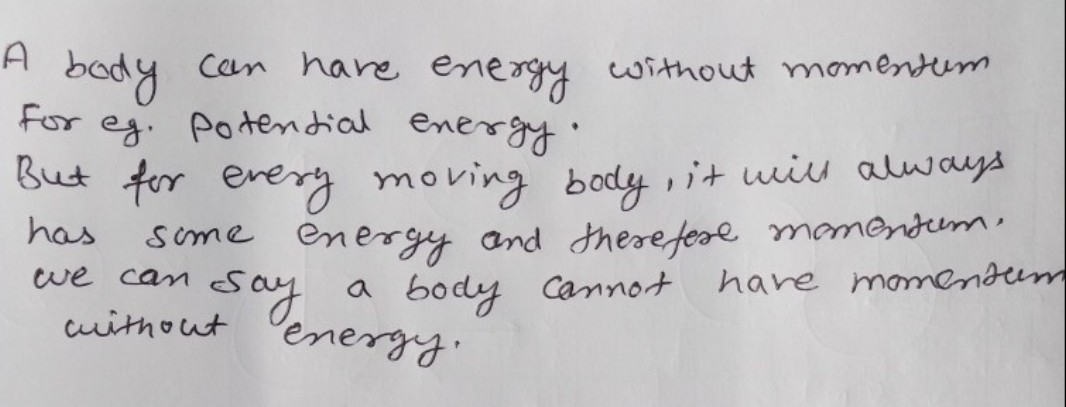 A body can have energy without momentum
For eg. Potential energy.
But for every moving body, it will always
has some energy and therefore momentum.
we can say a body cannot have momentum
without energy.